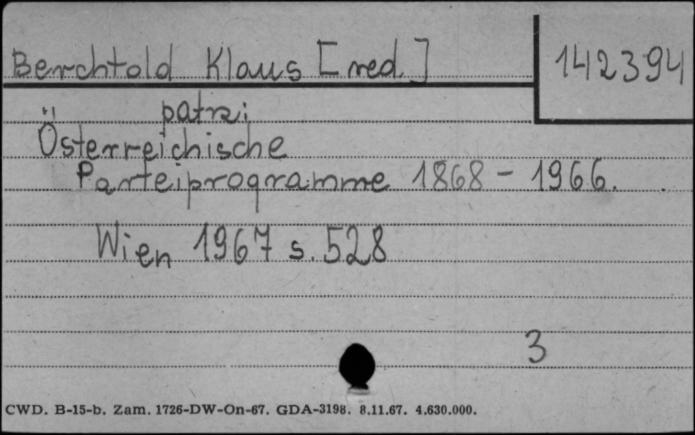 Berchtold Klaus [red.]
142394
patrz:
Österreichische
Parteiprogramme 1868 - 1966.
Wien 1967 s. 528
3
CWD. B-15-b. Zam. 1726-DW-On-67. GDA-3198. 8.11.67. 4.630.000.